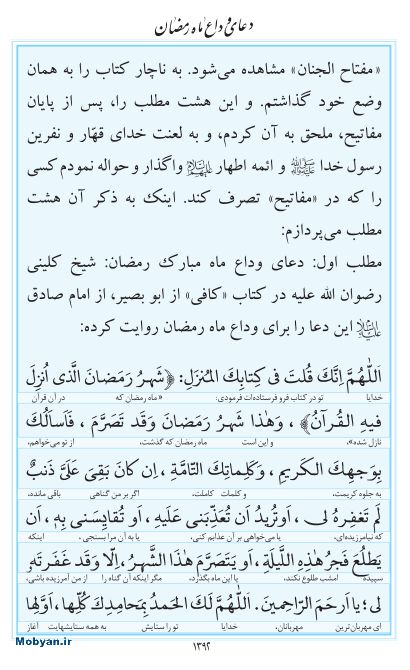 دعای وداع ماه رمضان
«مفتاح الجنان» مشاهده می‌شود. به ناچار کتاب را به همان
وضع خود گذاشتم. و این هشت مطلب را، پس از پایان
مفاتیح، ملحق به آن کردم، و به لعنت خدای قهّار و نفرین
رسول خدا ﷺ و ائمه اطهار علیهم‌السلام واگذار و حواله نمودم کسی
را که در «مفاتیح» تصرف کند. اینک به ذکر آن هشت
مطلب می‌پردازم:
مطلب اول: دعای وداع ماه مبارک رمضان: شیخ کلینی
رضوان الله علیه در کتاب «کافی» از ابو بصیر، از امام صادق
علیه‌السلام این دعا را برای وداع ماه رمضان روایت کرده:
اَللّٰهُمَّ اِنَّكَ قُلتَ فی كِتابِكَ المُنزَلِ: ﴿شَهرُ رَمَضانَ الَّذی اُنزِلَ
خدایا تو در کتاب فرو فرستاده‌ات فرمودی: «ماه رمضان که در آن قرآن
فیهِ القُرآنُ﴾، وَهٰذا شَهرُ رَمَضانَ وَقَد تَصَرَّمَ، فَاَسأَلُكَ
نازل شده»، و این است ماه رمضان که گذشت، از تو می‌خواهم،
بِوَجهِكَ الكَریمِ، وَكَلِماتِكَ التّامَّةِ، اِن كانَ بَقِیَ عَلَیَّ ذَنبٌ
به جلوه کریمت، و کلمات کاملت، اگر بر من گناهی باقی مانده،
لَم تَغفِرهُ لی، اَو تُریدُ اَن تُعَذِّبَنی عَلَیهِ، اَو تُقایِسَنی بِهٖ، اَن
که نیامرزیده‌ای، یا می‌خواهی بر آن عذابم کنی، یا به آن مرا بسنجی، اینکه
یَطلُعَ فَجرُ هٰذِهِ اللَّیلَةِ، اَو یَتَصَرَّمَ هٰذَا الشَّهرُ، اِلّا وَقَد غَفَرتَهٗ
سپیده امشب طلوع نکند، یا این ماه بگذرد، مگر اینکه آن گناه را از من آمرزیده باشی،
لی؛ یا اَرحَمَ الرّاحِمینَ. اَللّٰهُمَّ لَكَ الحَمدُ بِمَحامِدِكَ كُلِّها، اَوَّلِها
ای مهربان‌ترین مهربانان، خدایا تو را ستایش به همه ستایشهایت آغاز
۱۳۹۲
Mobyan.ir